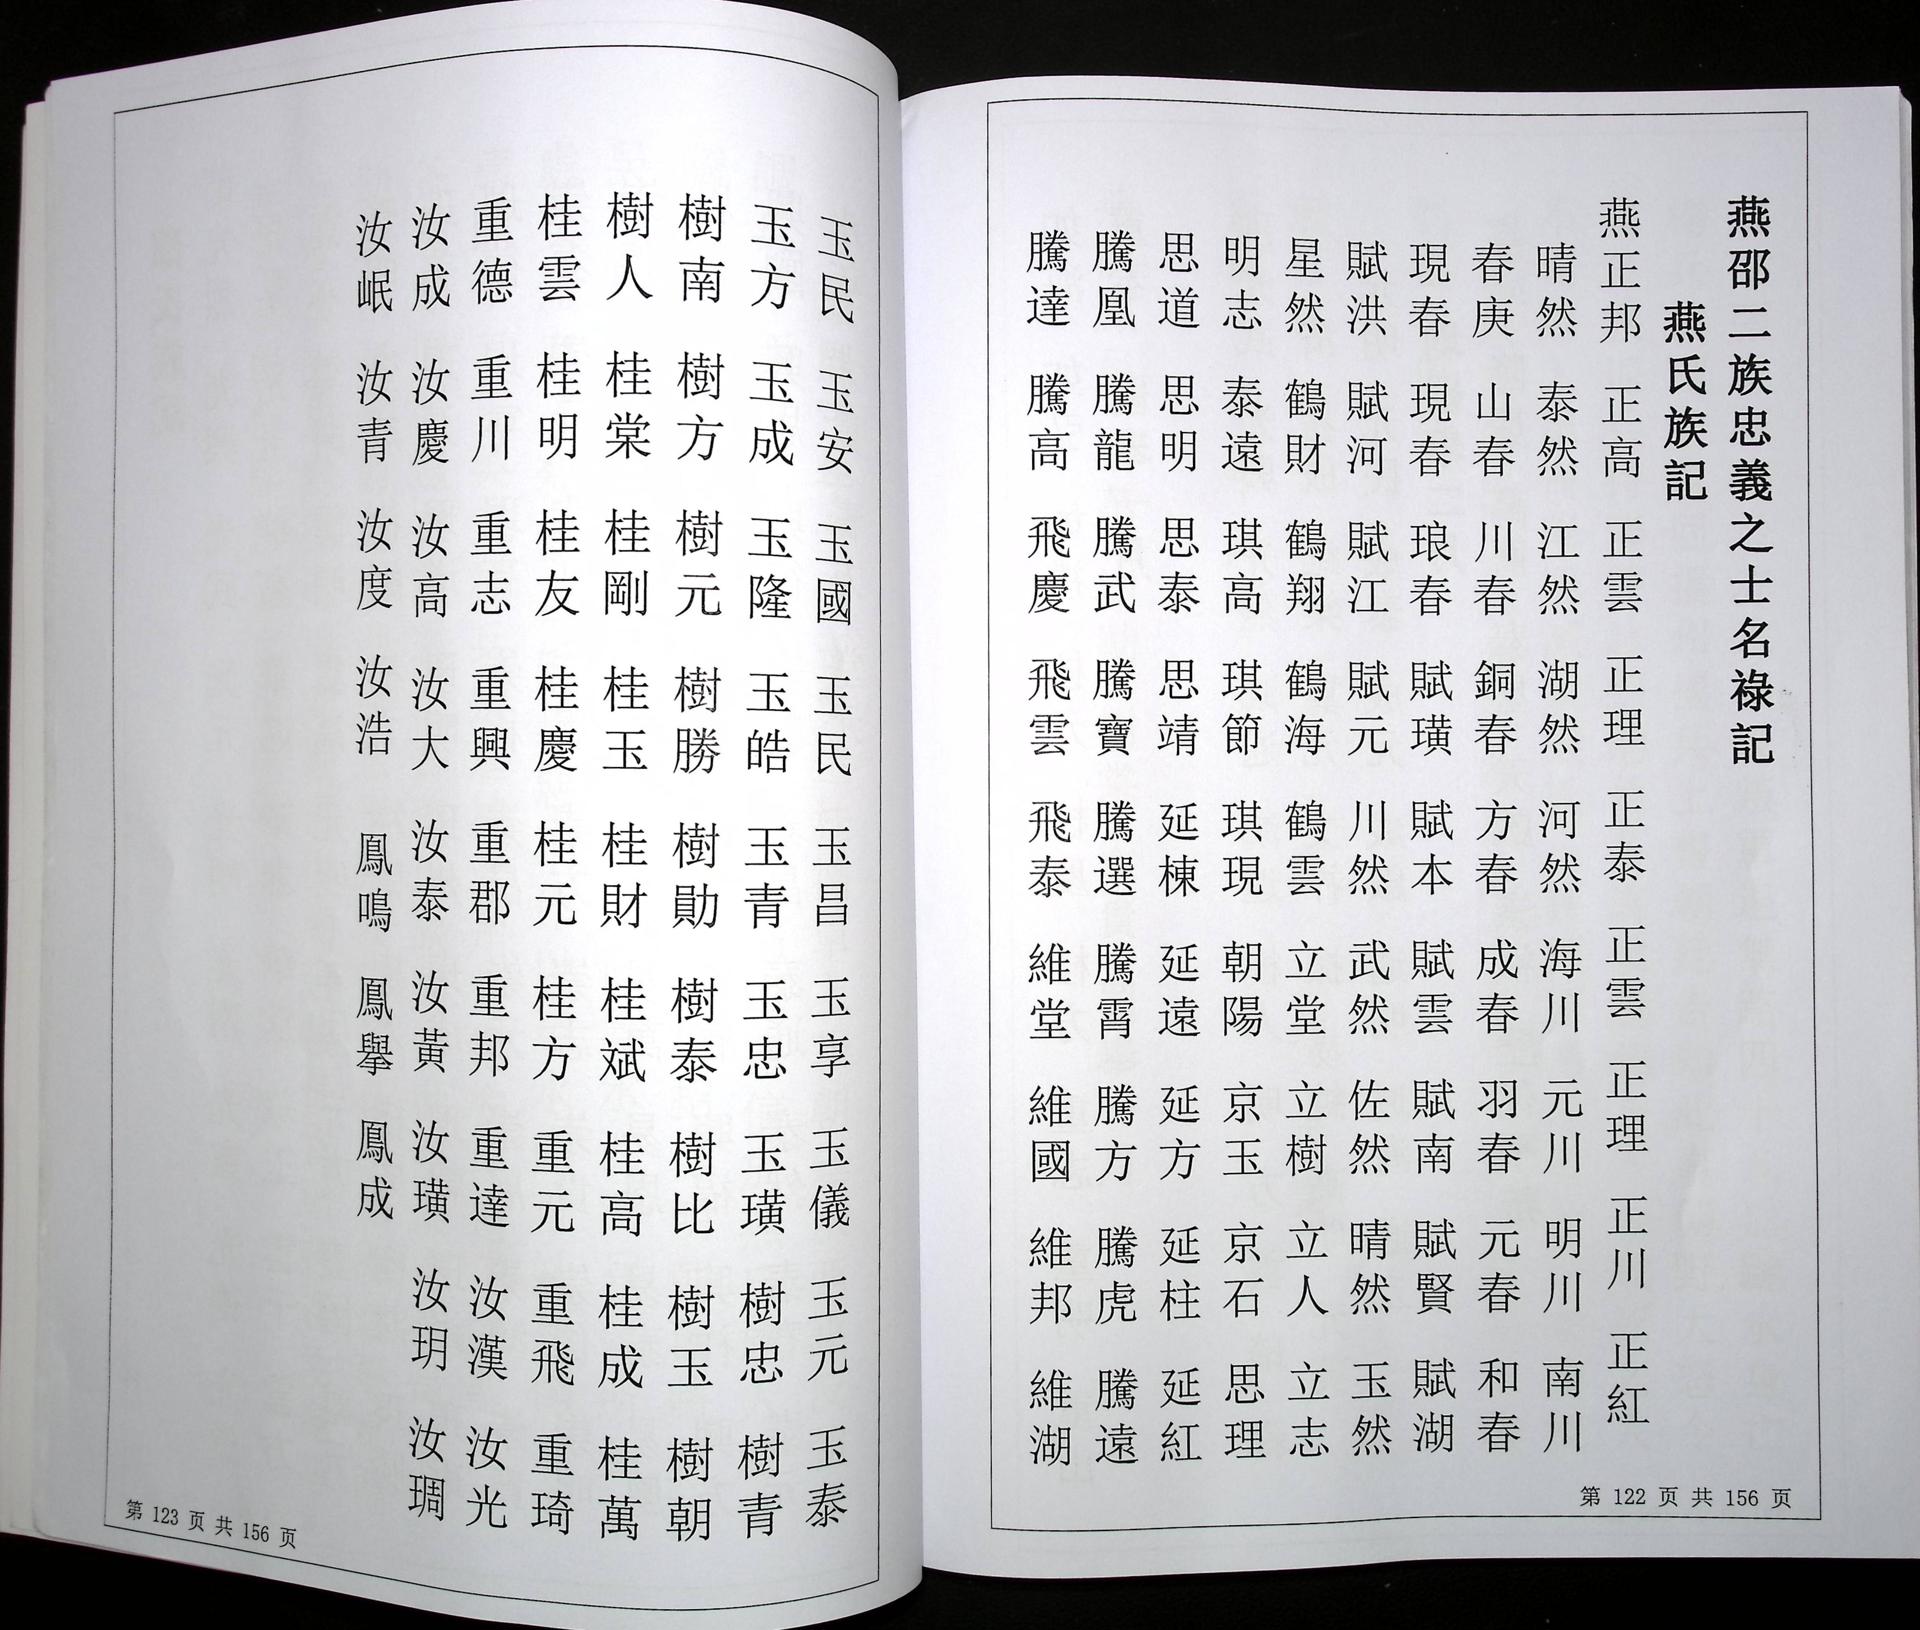 燕邵二族忠義之士名祿記
燕氏族記
燕正邦 正高 正雲 正理 正泰 正雲 正理 正川 正紅
晴然 泰然 江然 湖然 河然 海川 元川 明川 南川
春庚 山春 川春 銅春 方春 成春 羽春 元春 和春
現春 現春 琅春 賦璜 賦本 賦雲 賦南 賦賢 賦湖
賦洪 賦河 賦江 賦元 川然 武然 佐然 晴然 玉然
星然 鶴財 鶴翔 鶴海 鶴雲 立堂 立樹 立人 立志
明志 泰遠 琪高 琪節 琪現 朝陽 京玉 京石 思理
思道 思明 思泰 思靖 延棟 延遠 延方 延柱 延紅
騰凰 騰龍 騰武 騰寶 騰選 騰霄 騰方 騰虎 騰遠
騰達 騰高 飛慶 飛雲 飛泰 維堂 維國 維邦 維湖
第 122 页 共 156 页
玉民 玉安 玉國 玉民 玉昌 玉享 玉儀 玉元 玉泰
玉方 玉成 玉隆 玉皓 玉青 玉忠 玉璜 樹忠 樹青
樹南 樹方 樹元 樹勝 樹勛 樹泰 樹比 樹玉 樹朝
樹人 桂棠 桂剛 桂玉 桂財 桂斌 桂高 桂成 桂萬
桂雲 桂明 桂友 桂慶 桂元 桂方 重元 重飛 重琦
重德 重川 重志 重興 重郡 重邦 重達 汝漢 汝光
汝成 汝慶 汝高 汝大 汝泰 汝黃 汝璜 汝玥 汝琱
汝岷 汝青 汝度 汝浩 鳳鳴 鳳舉 鳳成
第 123 页 共 156 页